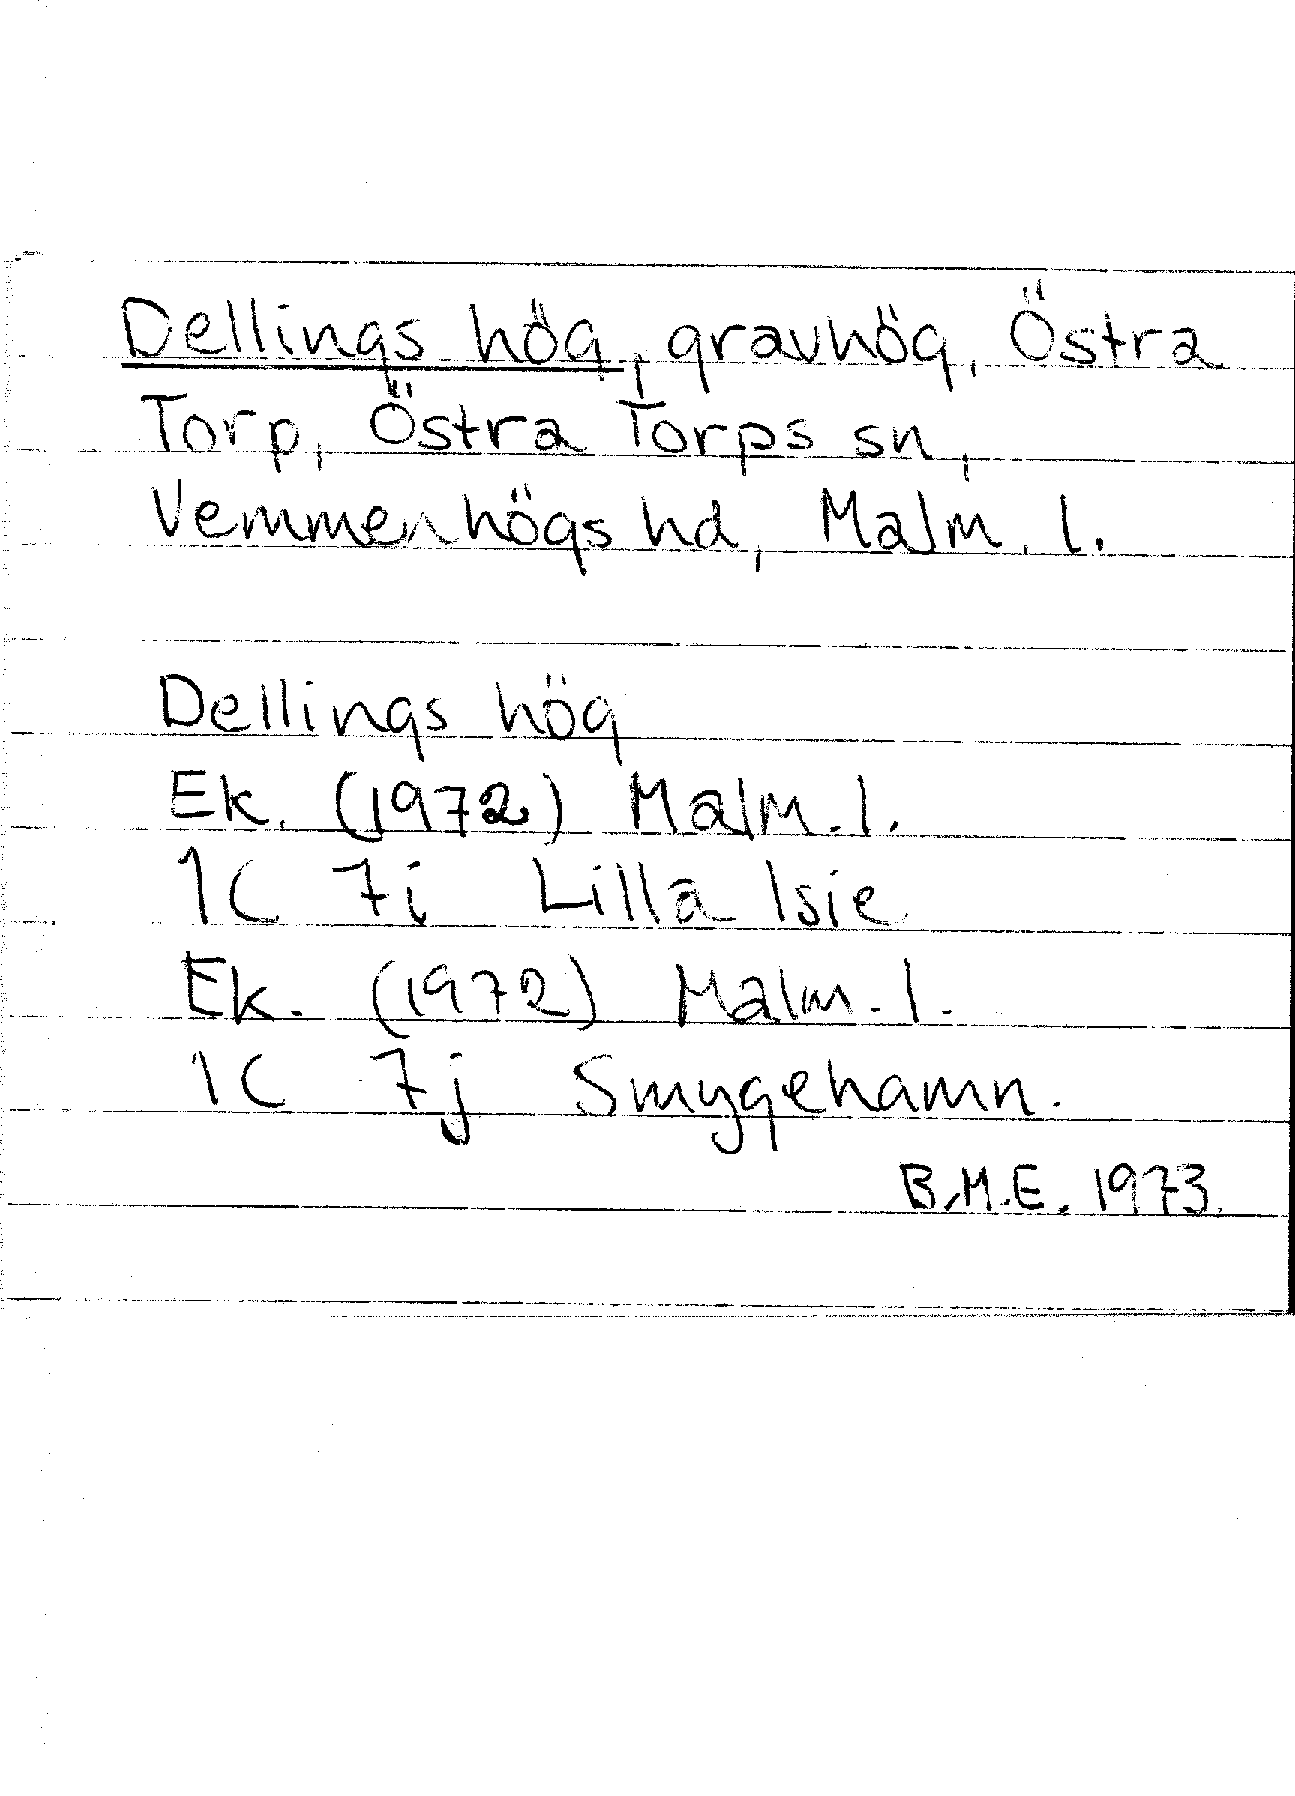 Dellings hög, gravhög, Östra
Torp, Östra Torps sn,
Vemmenhögs hd, Malm. l.
Dellings hög
Ek. (1972) Malm. l.
1C 7i Lilla Isie
Ek. (1972) Malm. l.
1C 7j Smygehamn.
B.M.E. 1973.